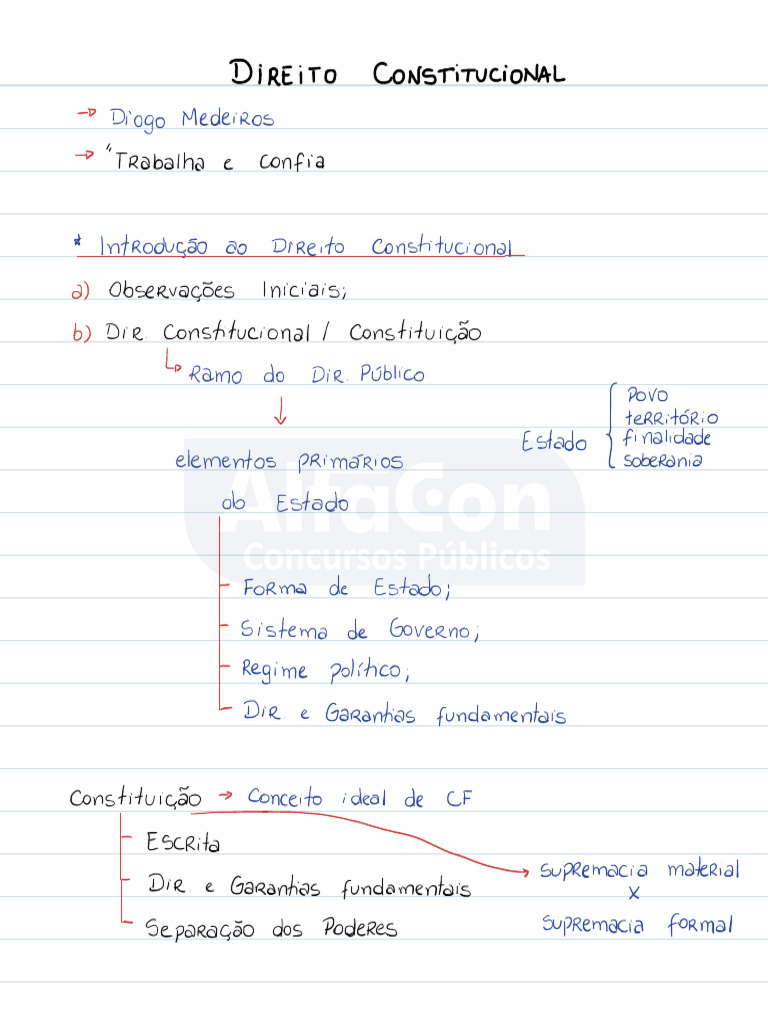 DIREITO CONSTITUCIONAL
→ Diogo Medeiros
→ "Trabalha e confia
* Introdução ao Direito Constitucional
a) Observações Iniciais;
b) Dir. Constitucional / Constituição
↳ Ramo do Dir. Público
Estado { Povo
território
finalidade
soberania
elementos primários
do Estado
AlfaCon
Concursos Públicos
- Forma de Estado;
- Sistema de Governo;
- Regime político;
- Dir e Garantias fundamentais
Constituição → Conceito ideal de CF
- Escrita
- Dir e Garantias fundamentais
- Separação dos Poderes
supremacia material
x
supremacia formal